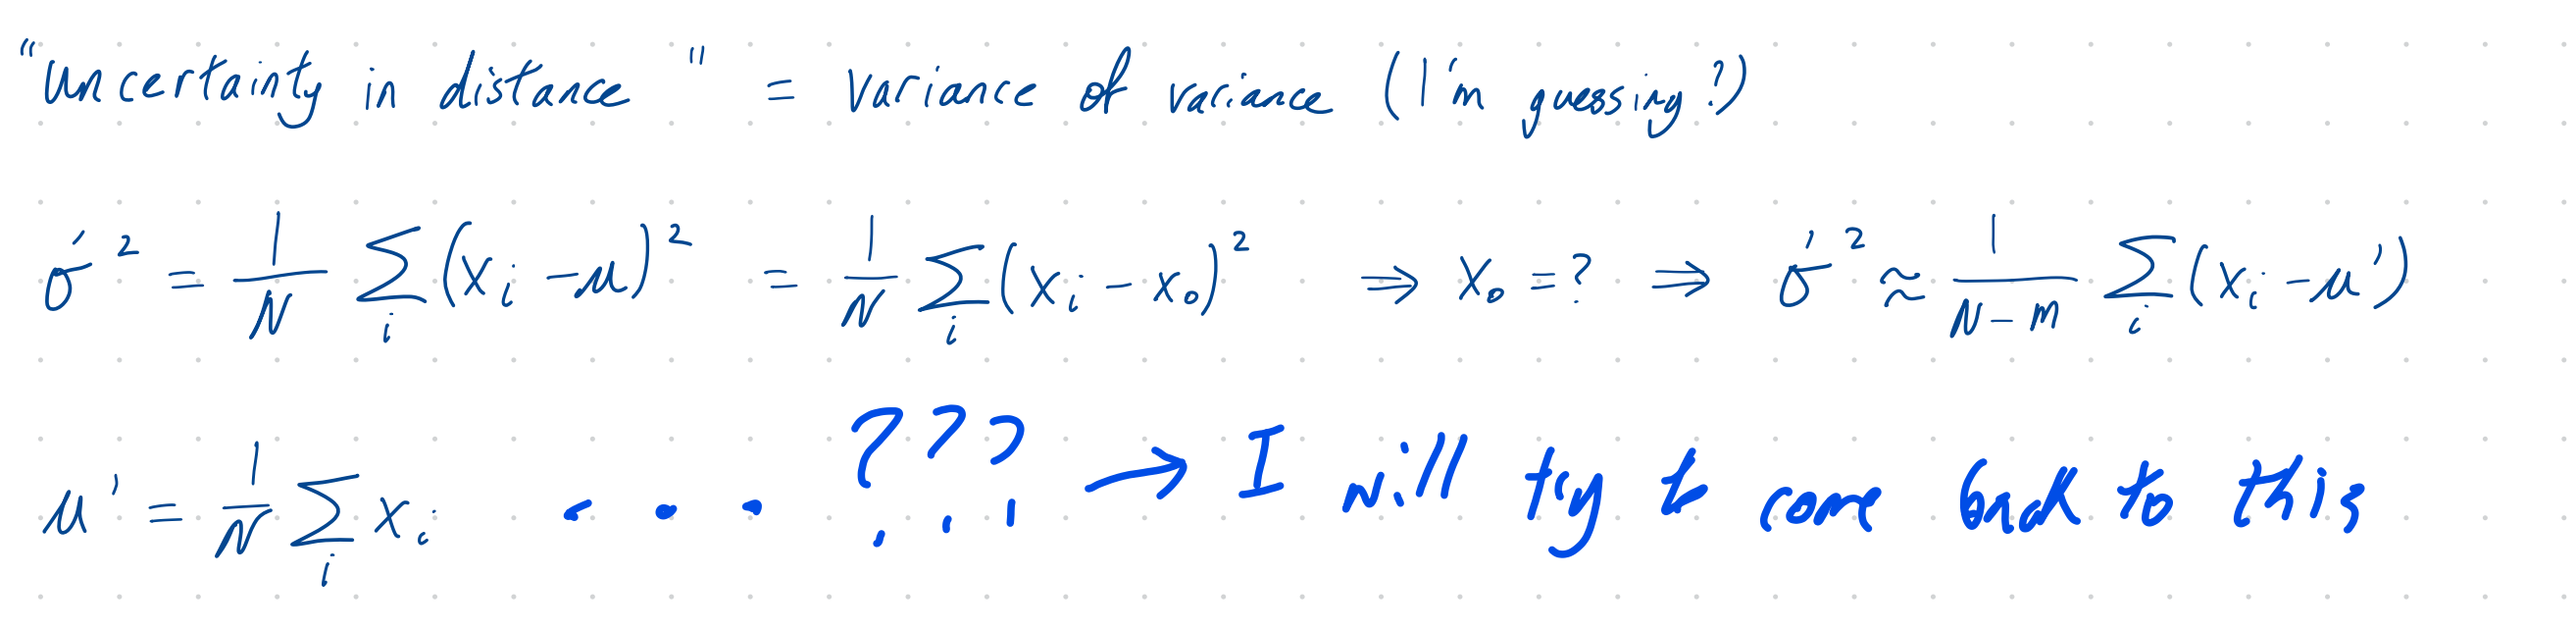 "uncertainty in distance" = variance of variance (I'm guessing?)
σ'² = 1/N Σ_i (x_i - μ)² = 1/N Σ_i (x_i - x_0)² ⇒ x_0 = ? ⇒ σ'² ≈ 1/(N-m) Σ_i (x_i - μ')
μ' = 1/N Σ_i x_i . . . ??? → I will try to come back to this